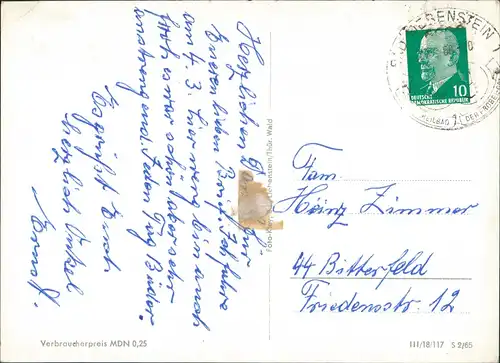 Herzlichen Dank für
Eueren lieben Brief. Ich fahre
am 4. 3. hier weg bin auch
froh es war schön aber sehr
anstrengend. Jeden Tag Bäder.
Es grüßt Euch
herzlich Onkel
Ernst.
Foto-K
enstein/Thür. Wald
BAD LIEBENSTEIN
HEILBAD
DER
10
DEUTSCHE
DEMOKRATISCHE REPUBLIK
Fam.
Heinz Zimmer
44 Bitterfeld
Friedensstr. 12
Verbraucherpreis MDN 0,25
III/18/117 S 2/65